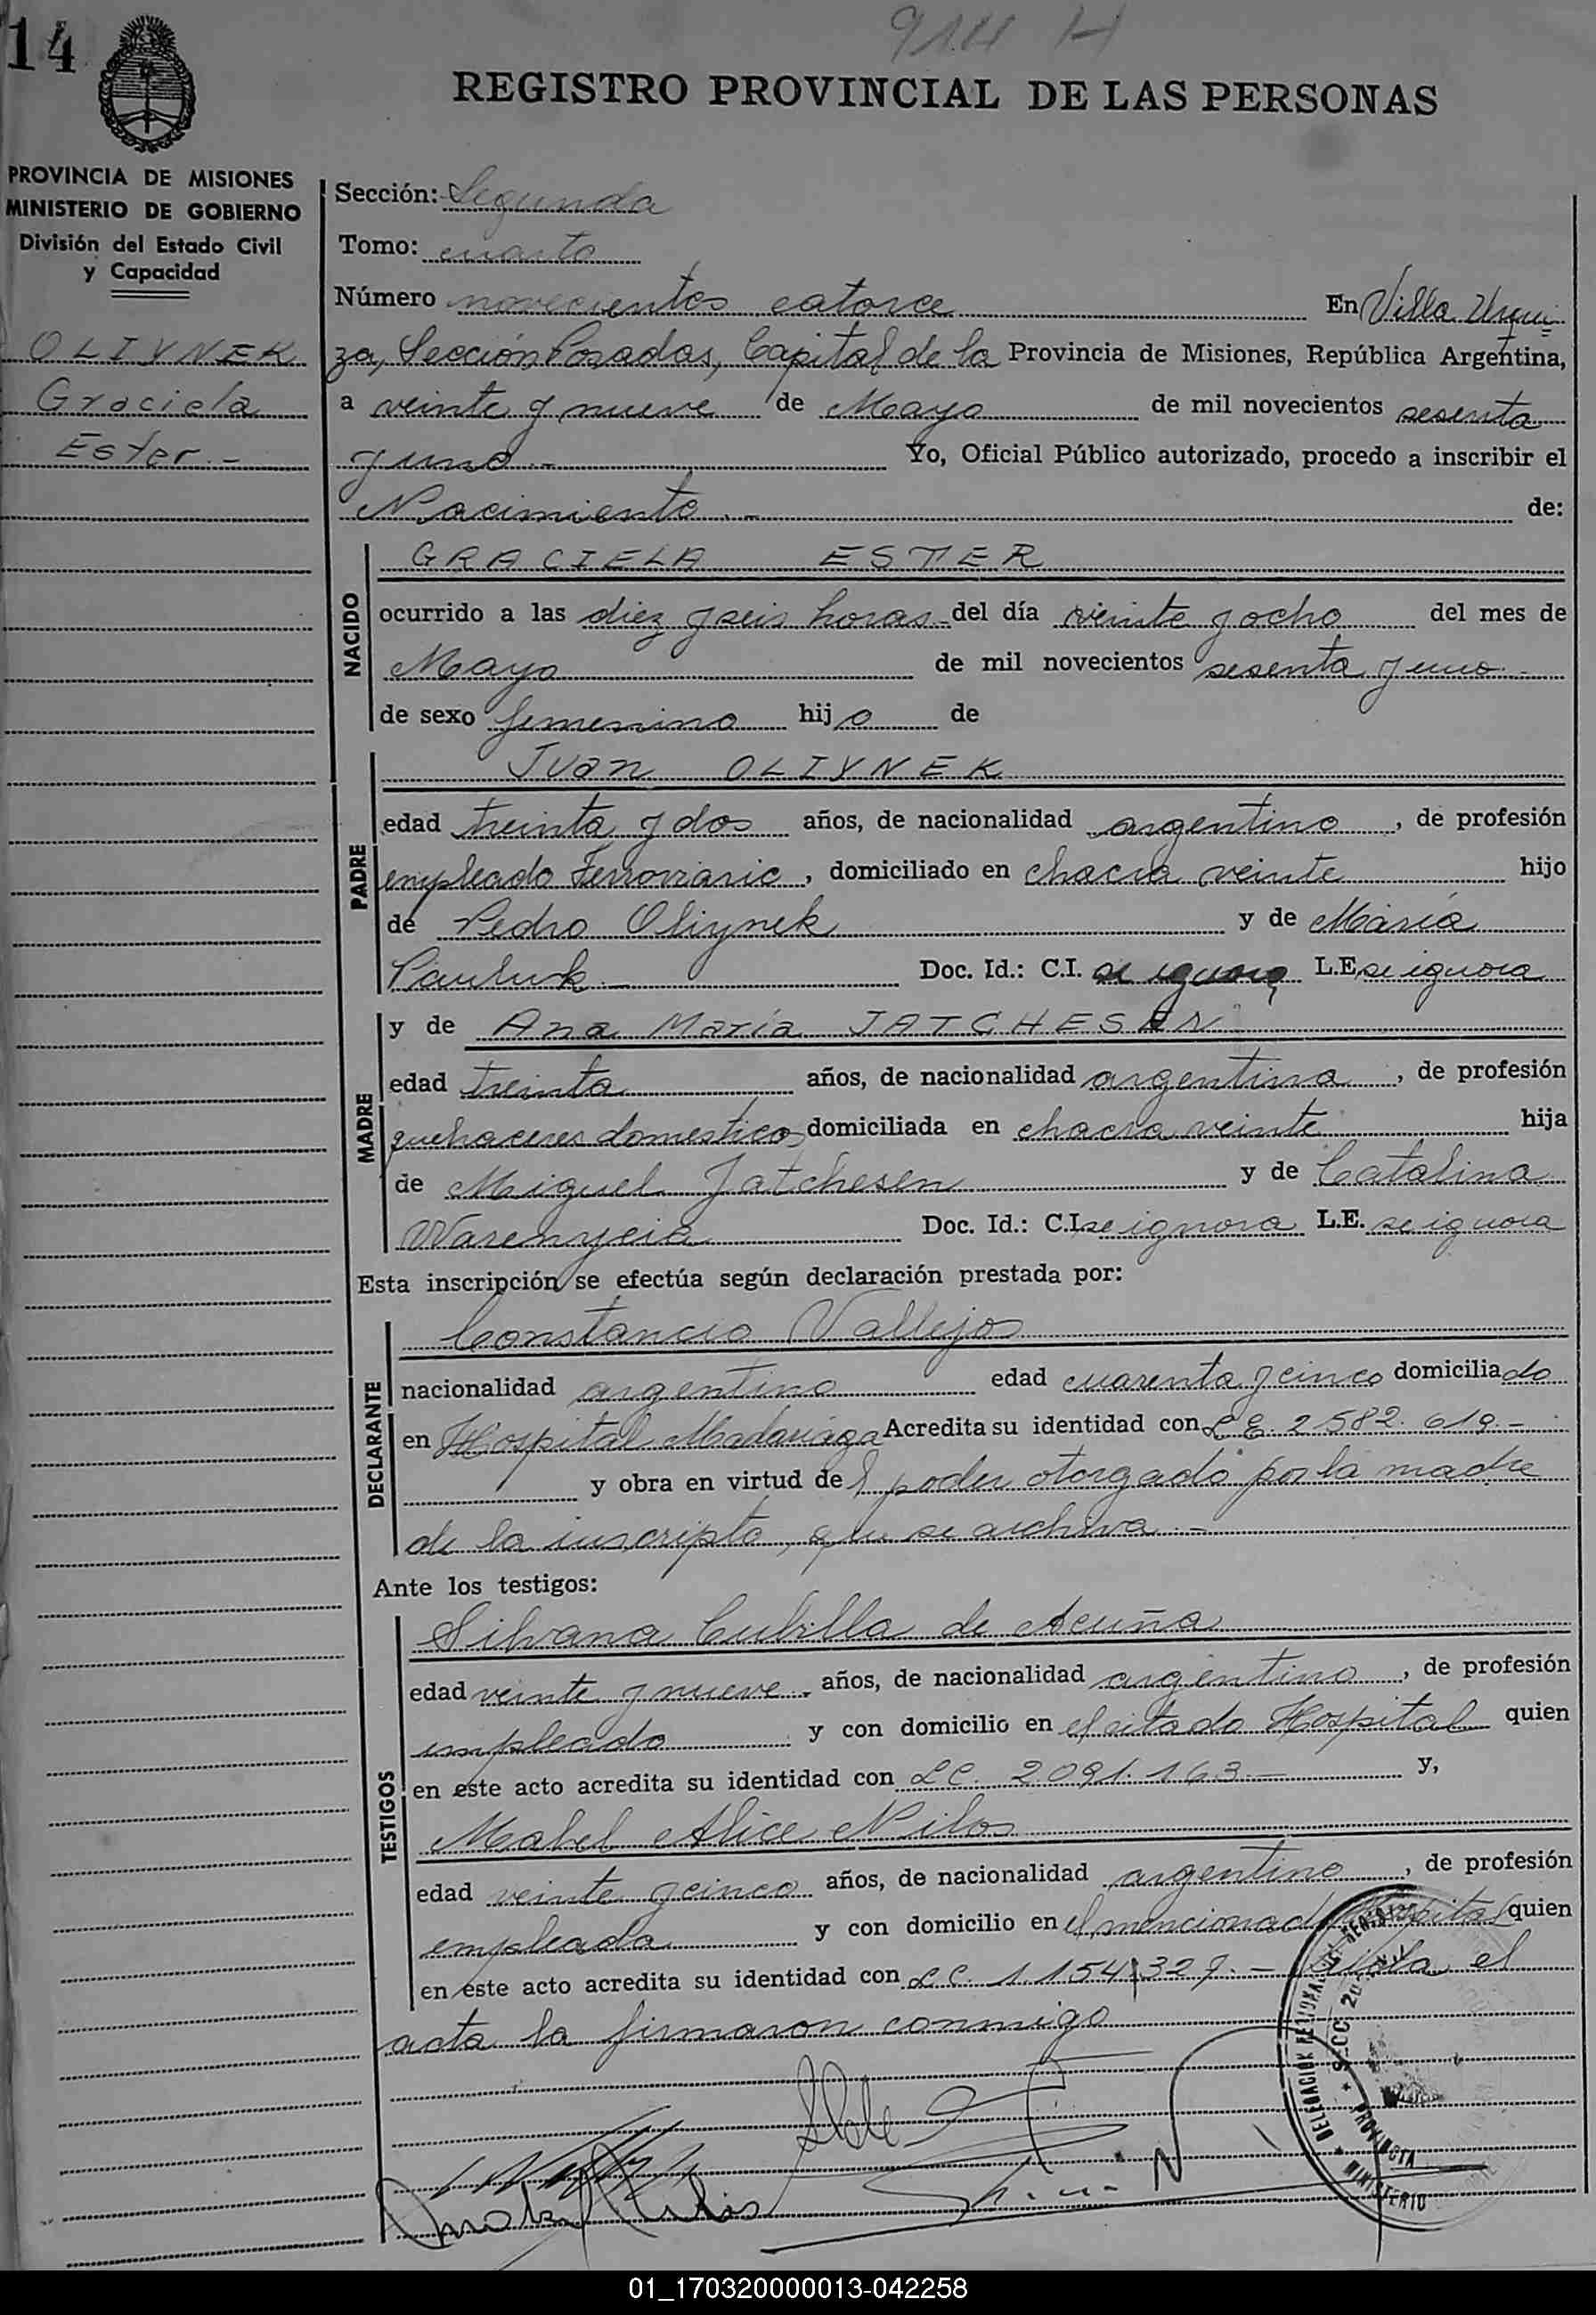 914 H
14
REGISTRO PROVINCIAL DE LAS PERSONAS
PROVINCIA DE MISIONES
MINISTERIO DE GOBIERNO
División del Estado Civil
y Capacidad
OLIYNEK
Graciela
Ester.-
Sección: Segunda
Tomo: cuarto
Número novecientos catorce En Villa Urqui
za, Sección Posadas, Capital de la Provincia de Misiones, República Argentina,
a veinte y nueve de Mayo de mil novecientos sesenta
y uno.- Yo, Oficial Público autorizado, procedo a inscribir el
Nacimiento.- de:
NACIDO
GRACIELA ESTER
ocurrido a las diez y seis horas del día veinte y ocho del mes de
Mayo de mil novecientos sesenta y uno.-
de sexo femenino hijo de
PADRE
Juan OLIYNEK
edad treinta y dos años, de nacionalidad argentino, de profesión
empleado Ferroviario, domiciliado en chacra veinte hijo
de Pedro Oliynek y de María
Pauluk.- Doc. Id.: C.I. se ignora L.E. se ignora
MADRE
y de Ana María JATCHESEN
edad treinta años, de nacionalidad argentina, de profesión
quehaceres domesticos domiciliada en chacra veinte hija
de Miguel Jatchesen y de Catalina
Warenycia Doc. Id.: C.I. se ignora L.E. se ignora
Esta inscripción se efectúa según declaración prestada por:
DECLARANTE
Constancio Vallejos
nacionalidad argentino edad cuarenta y cinco domiciliado
en Hospital Madariaga Acredita su identidad con L E. 2582.619.-
y obra en virtud del poder otorgado por la madre
de la inscripta, que se archiva.-
Ante los testigos:
TESTIGOS
Silvana Cubilla de Acuña
edad veinte y nueve años, de nacionalidad argentino, de profesión
empleada y con domicilio en el citado Hospital quien
en este acto acredita su identidad con LC. 2.091.163.- y,
Mabel Alice Nilos
edad veinte y cinco años, de nacionalidad argentino, de profesión
empleada y con domicilio en el mencionado Hospital quien
en este acto acredita su identidad con LC. 1.154.329.- Leida el
acta la firmaron conmigo
DELEGACION
SECC 2
PROVINCIA
MINISTERIO
01_170320000013-042258